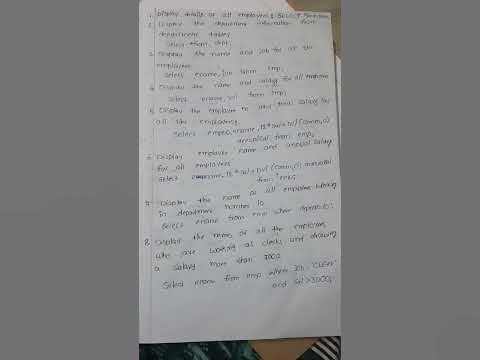 1. Display details of all employees & Select * from emp;
2. Display the department information from
department table.
Select * from dept;
3. Display the name and job for all the
employees.
Select ename, job from emp;
4. Display the name and salary for all employees
Select ename, sal from emp;
5. Display the employee no and total salary for
all the employees.
Select empno, ename, 12*sal+nvl(comm,0)
annualsal from emp;
6. Display employee name and annual salary
for all employees
select ename, 12*sal+nvl(comm,0) annualsal
from emp;
7. Display the name of all employees working
in department number 10
Select ename from emp where deptno=10;
8. Display the names of all the employees
who are working as clerks and drawing
a salary more than 3000
Select ename from emp where job='CLERK'
and sal>3000;